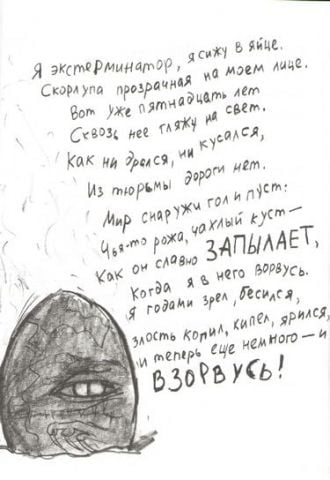 Я экстерминатор, я сижу в яйце.
Скорлупа прозрачная на моем лице.
Вот уже пятнадцать лет
Сквозь нее гляжу на свет.
Как ни дрался, ни кусался,
Из тюрьмы дороги нет.
Мир снаружи гол и пуст:
Чья-то рожа, чахлый куст —
Как он славно ЗАПЫЛАЕТ,
Когда я в него ворвусь.
Я годами зрел, бесился,
злость копил, кипел, ярился,
и теперь еще немного — и
ВЗОРВУСЬ!